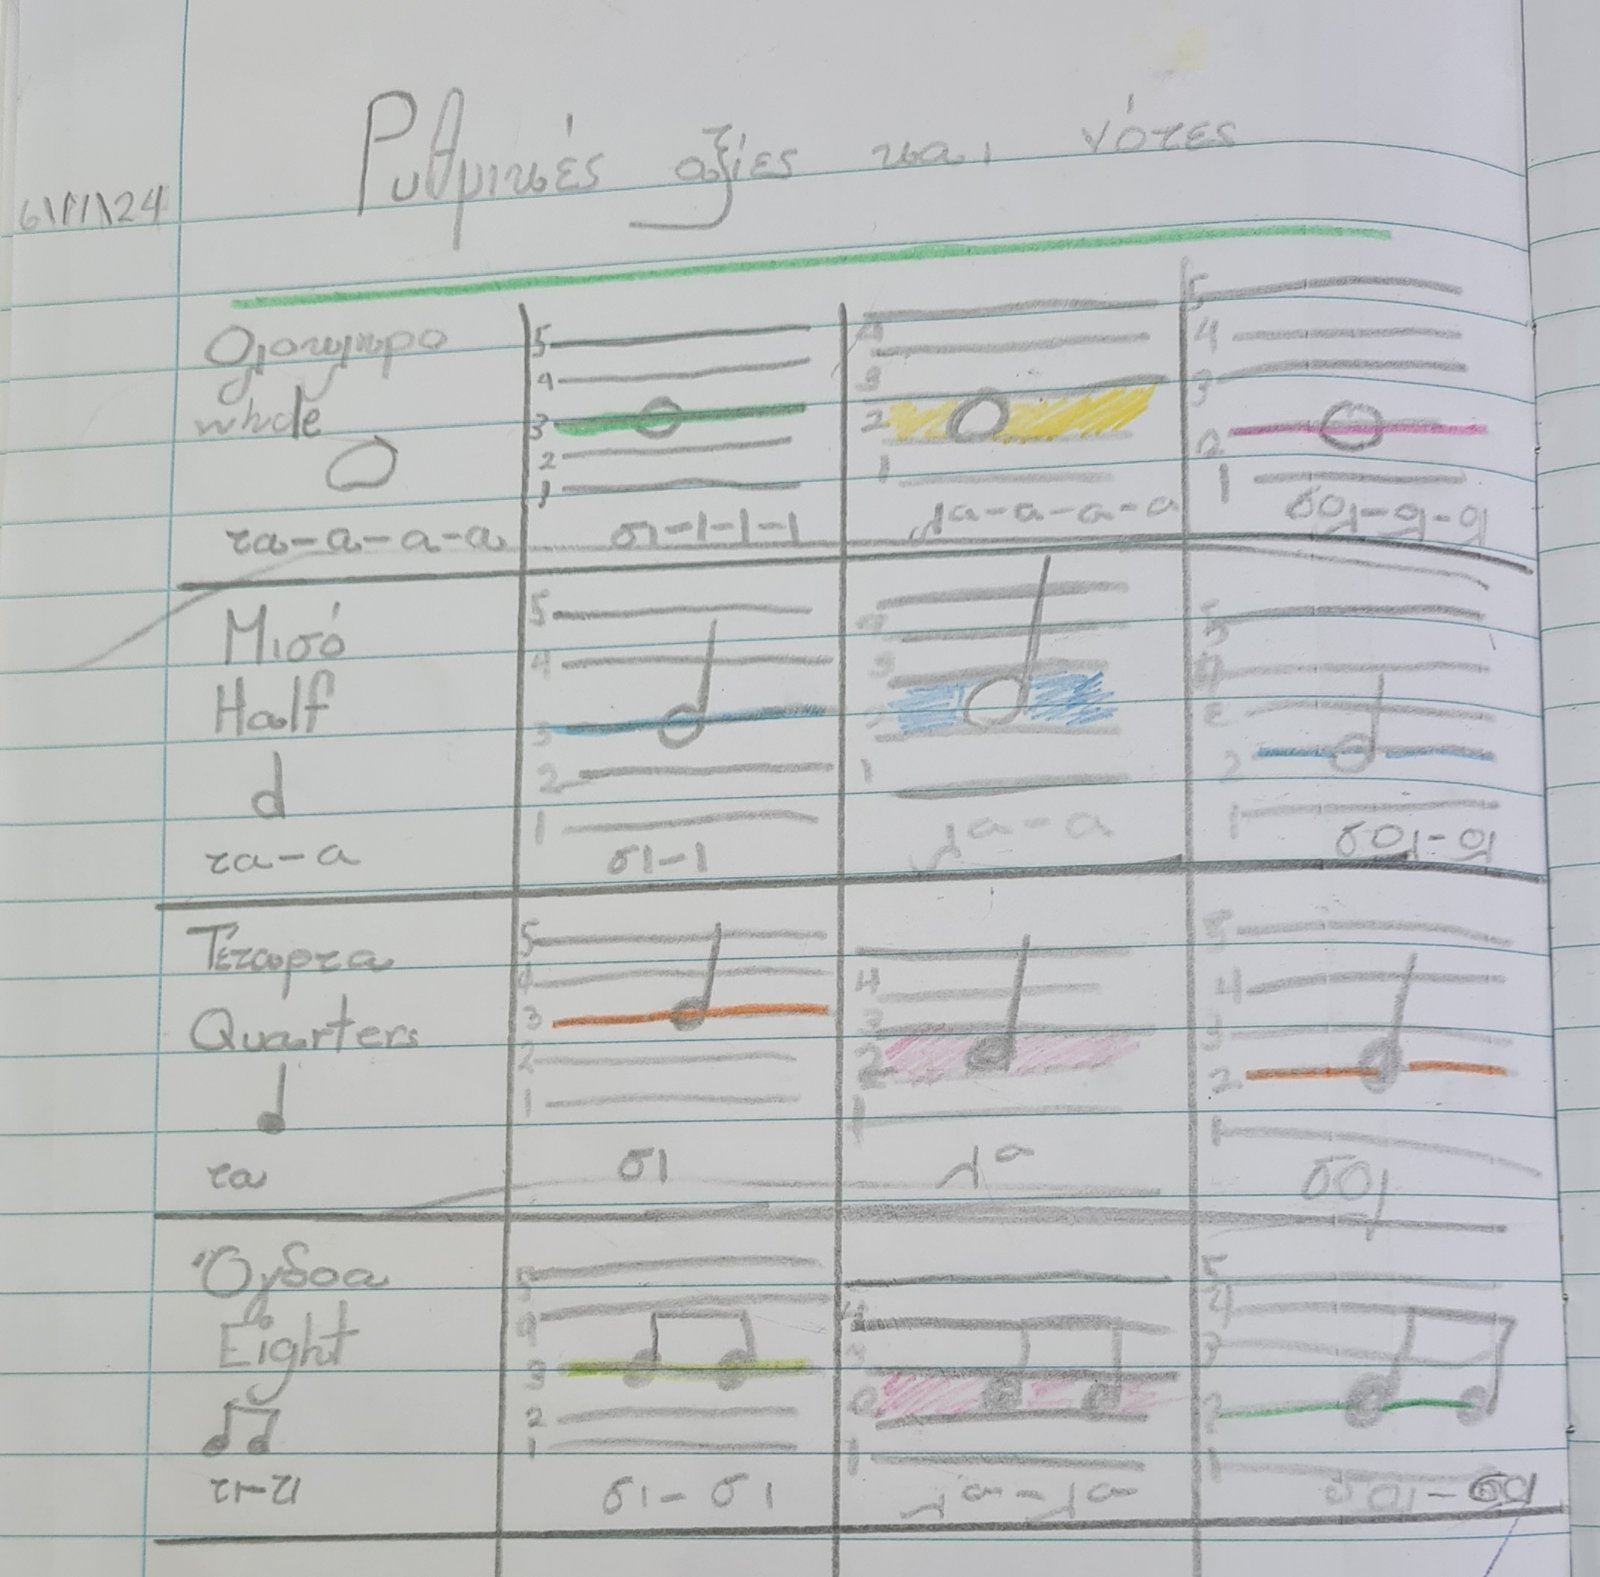 Ρυθμικές αξίες και νότες
6\11\24
Ολοκληρο
whole
τα-α-α-α
5
4
3
2
1
σι-ι-ι-ι
4
3
2
1
λα-α-α-α
5
4
3
2
1
σολ-ολ-ολ
Μισό
Half
τα-α
5
4
3
2
1
σι-ι
3
1
λα-α
5
2
1
σολ-ολ
Τέταρτα
Quarters
τα
5
4
3
2
1
σι
4
3
2
1
λα
5
4
3
2
1
σολ
Όγδοα
Eight
τι-τι
5
4
3
2
1
σι-σι
4
3
2
1
λα-λα
5
4
3
2
1
σολ-σολ